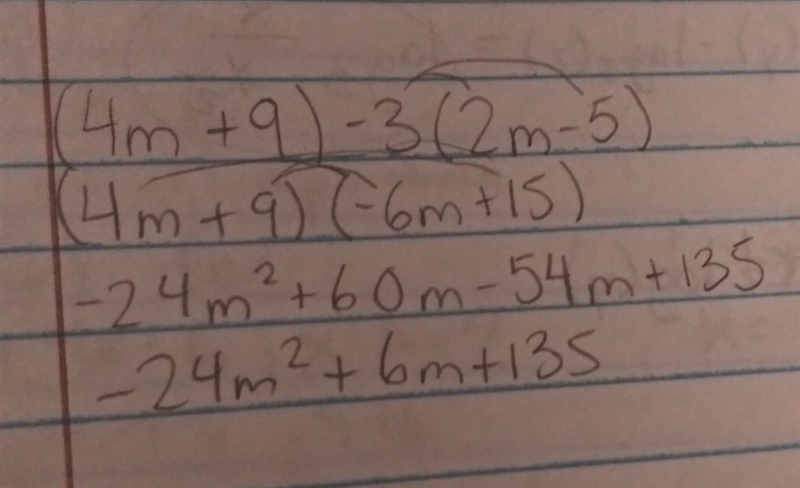 (4m + 9) - 3(2m - 5)
(4m + 9)(-6m + 15)
-24m² + 60m - 54m + 135
-24m² + 6m + 135